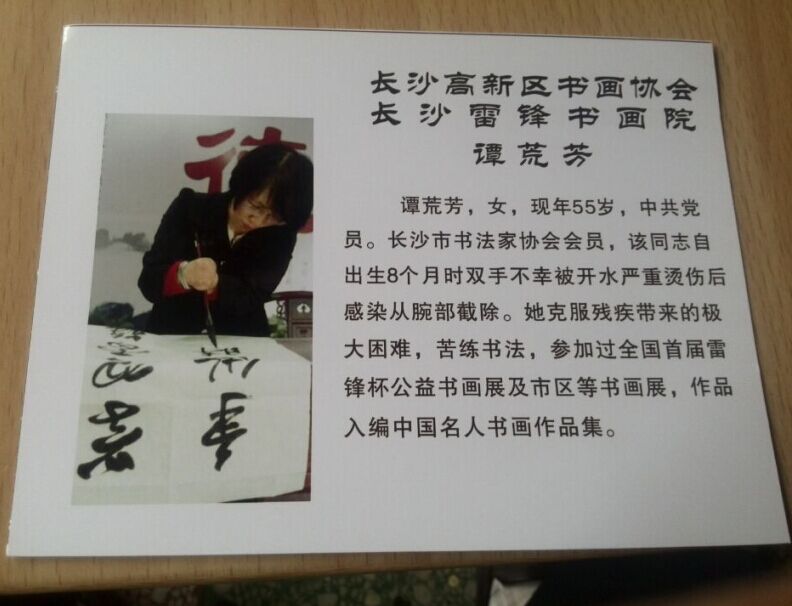 长沙高新区书画协会
长沙雷锋书画院
谭荒芳
谭荒芳，女，现年55岁，中共党
员。长沙市书法家协会会员，该同志自
出生8个月时双手不幸被开水严重烫伤后
感染从腕部截除。她克服残疾带来的极
大困难，苦练书法，参加过全国首届雷
锋杯公益书画展及市区等书画展，作品
入编中国名人书画作品集。